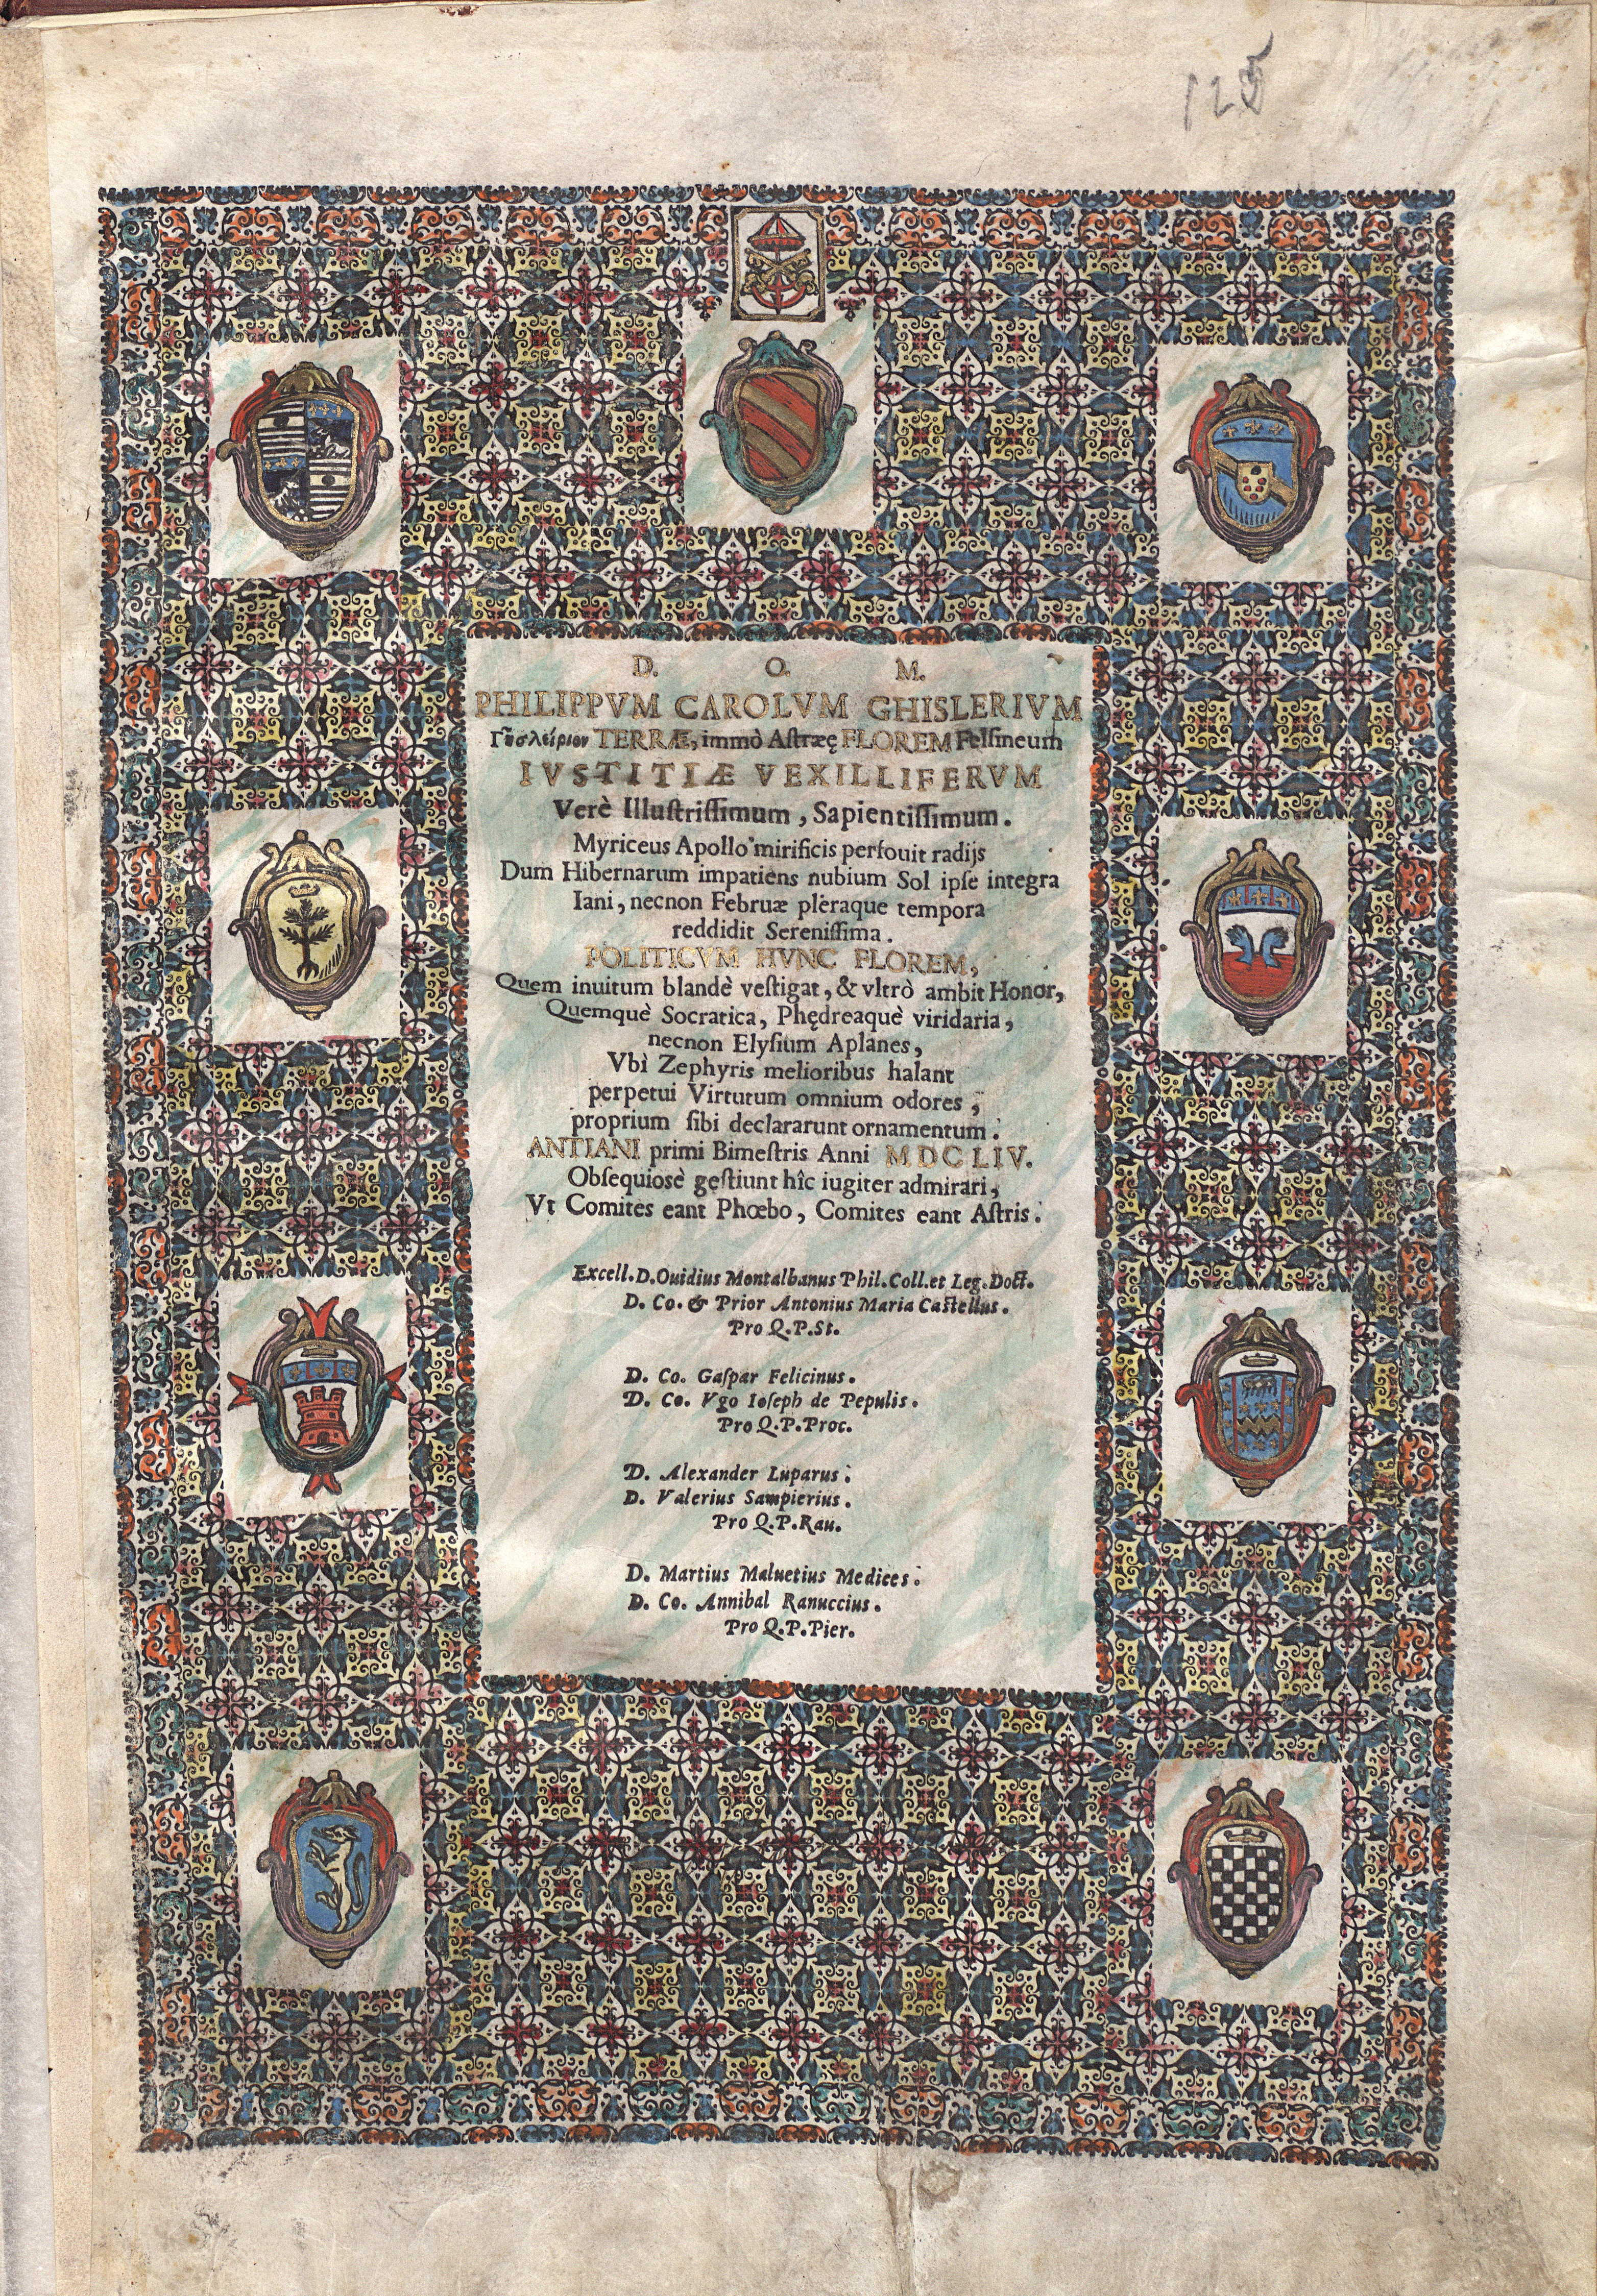 125
D. O. M.
PHILIPPVM CAROLVM GHISLERIVM
TERRÆ, immò Astræę FLOREM Felsineum
IVSTITIÆ VEXILLIFERVM
Verè Illustrissimum, Sapientissimum.
Myriceus Apollo mirificis perfouit radijs
Dum Hibernarum impatiens nubium Sol ipse integra
Iani, necnon Februæ pleraque tempora
reddidit Serenissima.
POLITICVM HVNC FLOREM,
Quem inuitum blandè vestigat, & vltrò ambit Honor,
Quemquè Socratica, Phędreaquè viridaria,
necnon Elysium Aplanes,
Vbì Zephyris melioribus halant
perpetui Virtutum omnium odores,
proprium sibi declararunt ornamentum.
ANTIANI primi Bimestris Anni MDCLIV.
Obsequiosè gestiunt hîc iugiter admirari,
Vt Comites eant Phœbo, Comites eant Astris.
Excell. D. Ouidius Montalbanus Phil. Coll. et Leg. Doct.
D. Co. & Prior Antonius Maria Castellus.
Pro Q. P. St.
D. Co. Gaspar Felicinus.
D. Co. Vgo Ioseph de Pepulis.
Pro Q. P. Proc.
D. Alexander Luparus.
D. Valerius Sampierius.
Pro Q. P. Rau.
D. Martius Maluetius Medices.
D. Co. Annibal Ranuccius.
Pro Q. P. Pier.